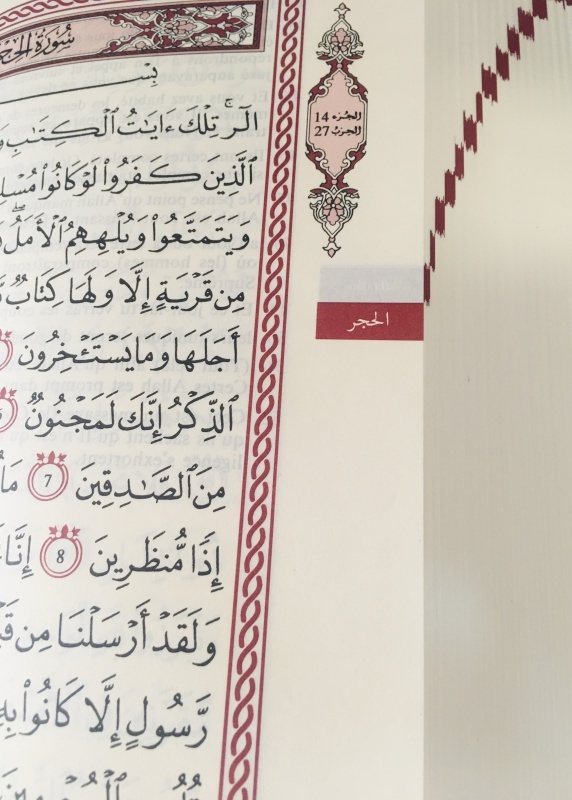 سُورَةُ الحِجْ
بِسْ
الٓرۚ تِلْكَ ءَايَٰتُ ٱلْكِتَٰبِ وَ
ٱلَّذِينَ كَفَرُوا۟ لَوْ كَانُوا۟ مُسْلِ
وَيَتَمَتَّعُوا۟ وَيُلْهِهِمُ ٱلْأَمَلُۖ
مِن قَرْيَةٍ إِلَّا وَلَهَا كِتَابٌ
أَجَلَهَا وَمَا يَسْتَـْٔخِرُونَ
ٱلذِّكْرُ إِنَّكَ لَمَجْنُونٌ
مِنَ ٱلصَّٰدِقِينَ 7 مَا
إِذًا مُّنظَرِينَ 8 إِنَّا
وَلَقَدْ أَرْسَلْنَا مِن قَ
رَّسُولٍ إِلَّا كَانُوا۟ بِهِ
الجزء 14
الحزب 27
الحجر